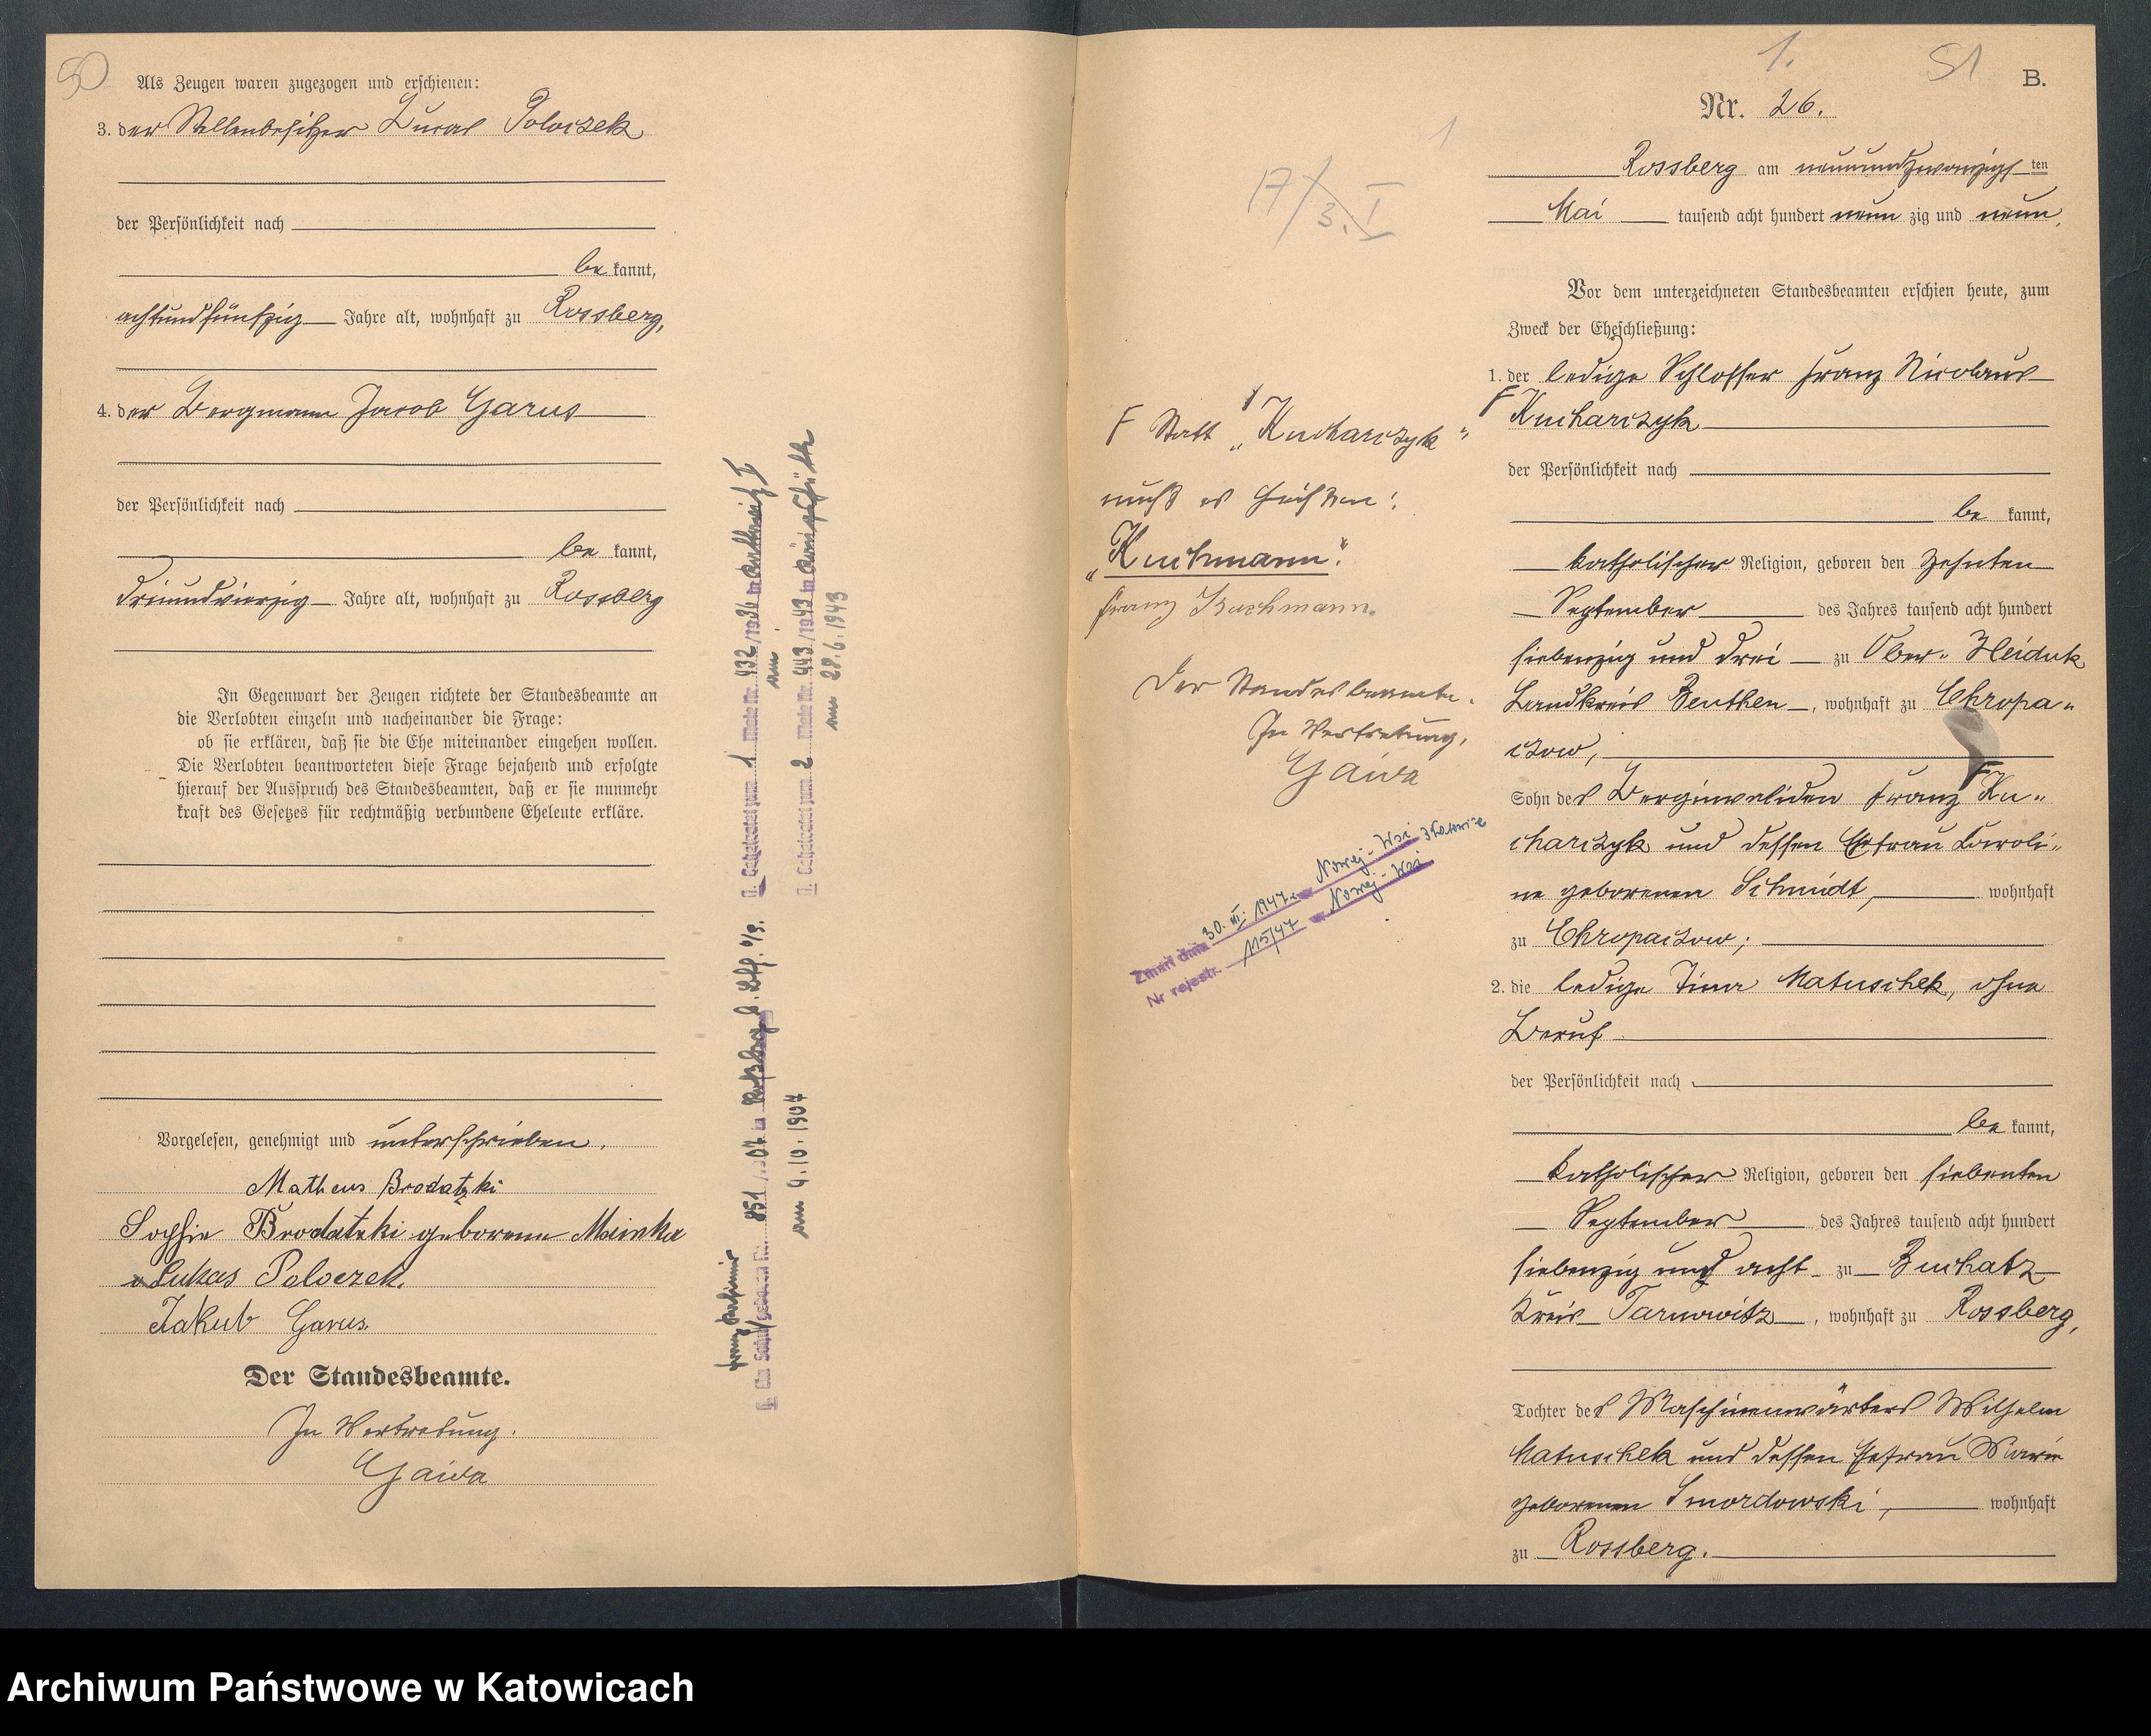 50
Als Zeugen waren zugezogen und erschienen:
3. der Stellenbesitzer Lucas Poloczek
der Persönlichkeit nach
be kannt,
achtundfünfzig Jahre alt, wohnhaft zu Rossberg,
4. der Bergmann Jacob Garus
der Persönlichkeit nach
be kannt,
dreiundvierzig Jahre alt, wohnhaft zu Rossberg
In Gegenwart der Zeugen richtete der Standesbeamte an
die Verlobten einzeln und nacheinander die Frage:
ob sie erklären, daß sie die Ehe miteinander eingehen wollen.
Die Verlobten beantworteten diese Frage bejahend und erfolgte
hierauf der Ausspruch des Standesbeamten, daß er sie nunmehr
kraft des Gesetzes für rechtmäßig verbundene Eheleute erkläre.
Vorgelesen, genehmigt und unterschrieben.
Matheus Brodatzki
Sophie Brodatzki geborene Mainka
Lukas Poloczek
Jakub Garus.
Der Standesbeamte.
In Vertretung.
Gaida
Franz
1. Ein Sohn geboren Nr. 851/07 in Roßberg
am 4.10.1907
1. Geheiratet zum 1 Male Nr. 432/1936 in Kattowitz I
am
1. Geheiratet zum 2 Male Nr. 443/1943 in Königshütte
am 28.6.1943
17/3. I
1
F Statt „Kucharczyk“
muß es heißen:
„Kuchmann“.
Franz Kuchmann.
Der Standesbeamte.
In Vertretung,
Gaida
Zmarł dnia 30. III. 1947 w Nowej-Wsi
Nr rejestr. 115/47 w Nowej-Wsi
1.
51
B.
Nr. 26.
Rossberg am neunundzwanzigs ten
Mai tausend acht hundert neun zig und neun.
Vor dem unterzeichneten Standesbeamten erschien heute, zum
Zweck der Eheschließung:
1. der ledige Schlosser Franz Nicolaus
F Kucharczyk
der Persönlichkeit nach
be kannt,
katholischer Religion, geboren den zehnten
September des Jahres tausend acht hundert
siebenzig und drei zu Ober-Heiduk
Landkreis Beuthen, wohnhaft zu Chropa-
czow,
Sohn des Berginvaliden Franz F Ku-
charczyk und dessen Ehefrau Karoli-
ne geborenen Schmidt, wohnhaft
zu Chropaczow;
2. die ledige Matuschek, ohne
Beruf
der Persönlichkeit nach
be kannt,
katholischer Religion, geboren den siebenten
September des Jahres tausend acht hundert
siebenzig und acht zu Buchatz
Kreis Tarnowitz, wohnhaft zu Rossberg,
Tochter des Maschinenwärters Wilhelm
Matuschek und dessen Ehefrau Marie
geborenen Smordowski, wohnhaft
zu Rossberg.
Archiwum Państwowe w Katowicach